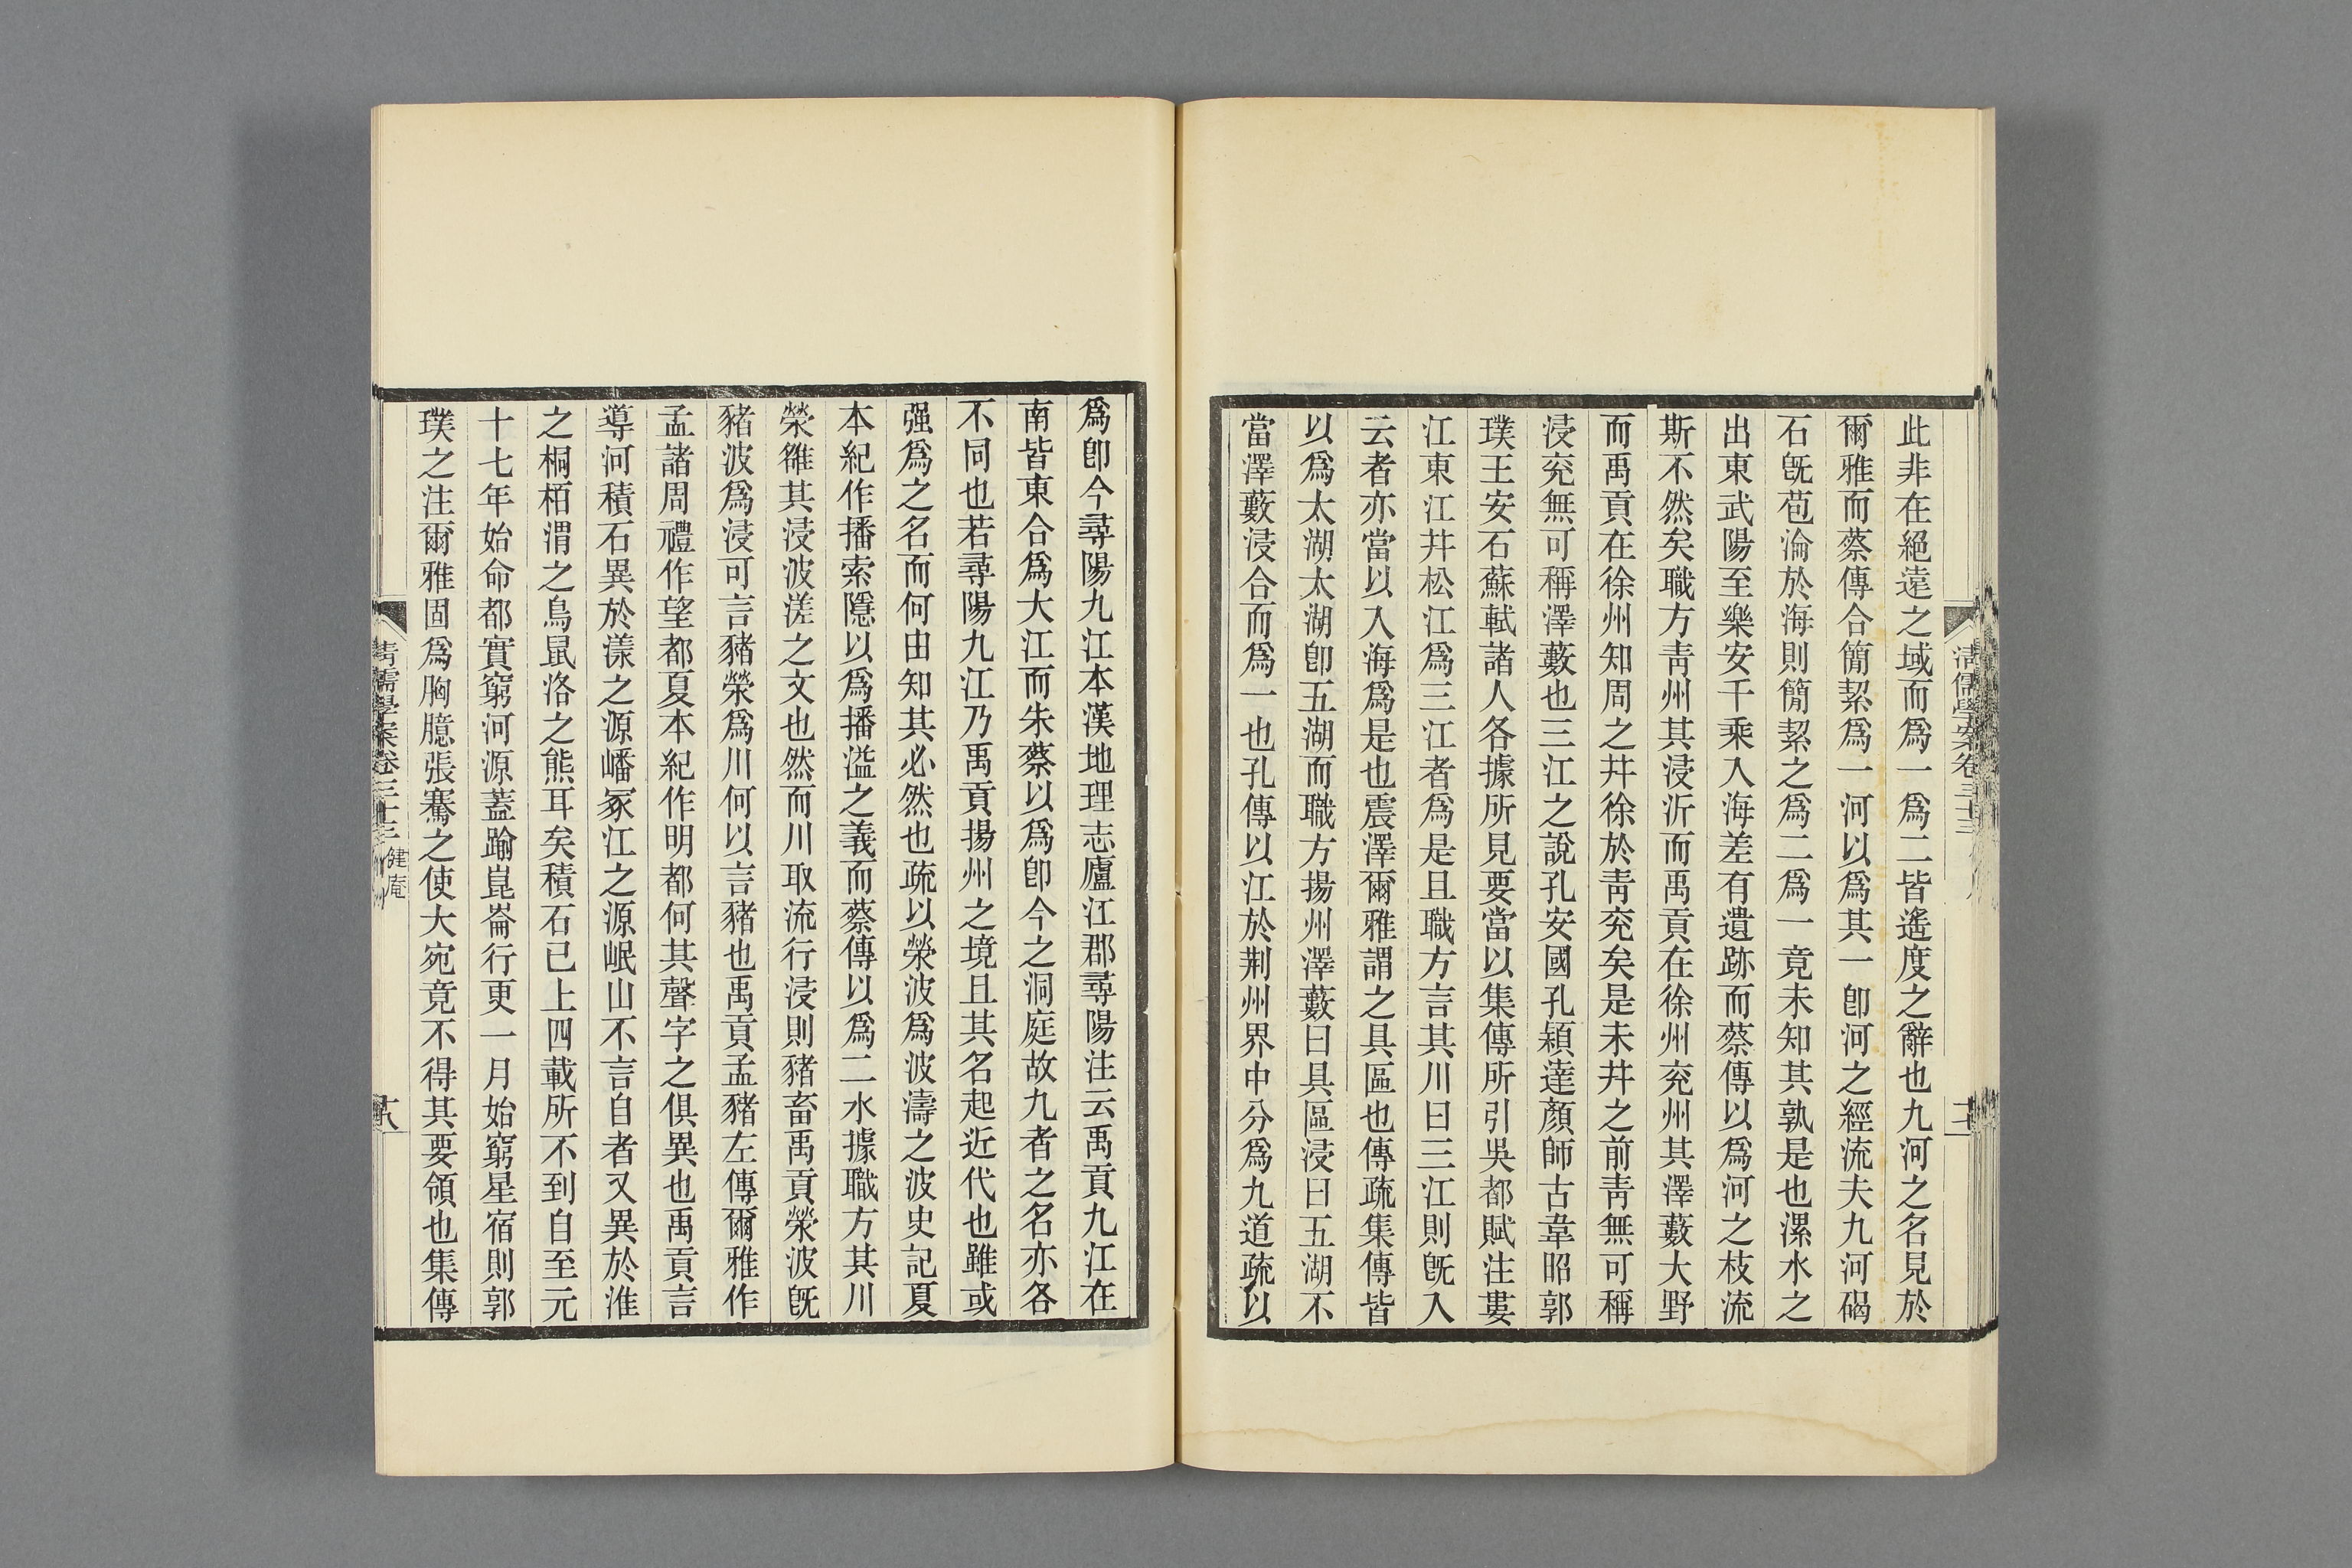 此非在絕遠之域而爲一爲二皆遙度之辭也九河之名見於
爾雅而蔡傳合簡絜爲一河以爲其一卽河之經流夫九河碣
石旣苞淪於海則簡絜之爲二爲一竟未知其孰是也漯水之
出東武陽至樂安千乘入海差有遺跡而蔡傳以爲河之枝流
斯不然矣職方靑州其浸沂而禹貢在徐州兗州其澤藪大野
而禹貢在徐州知周之幷徐於靑兗矣是未幷之前靑無可稱
浸兗無可稱澤藪也三江之說孔安國孔穎達顏師古韋昭郭
璞王安石蘇軾諸人各據所見要當以集傳所引吳都賦注婁
江東江幷松江爲三江者爲是且職方言其川曰三江則旣入
云者亦當以入海爲是也震澤爾雅謂之具區也傳疏集傳皆
以爲太湖太湖卽五湖而職方揚州澤藪曰具區浸曰五湖不
當澤藪浸合而爲一也孔傳以江於荆州界中分爲九道疏以
清儒學案卷三十三
爲卽今尋陽九江本漢地理志廬江郡尋陽注云禹貢九江在
南皆東合爲大江而朱蔡以爲卽今之洞庭故九者之名亦各
不同也若尋陽九江乃禹貢揚州之境且其名起近代也雖或
强爲之名而何由知其必然也疏以滎波爲波濤之波史記夏
本紀作播索隱以爲播溢之義而蔡傳以爲二水據職方其川
滎雒其浸波溠之文也然而川取流行浸則豬畜禹貢滎波旣
豬波爲浸可言豬滎爲川何以言豬也禹貢孟豬左傳爾雅作
孟諸周禮作望都夏本紀作明都何其聲字之俱異也禹貢言
導河積石異於漾之源嶓冢江之源岷山不言自者又異於淮
之桐栢渭之鳥鼠洛之熊耳矣積石已上四載所不到自至元
十七年始命都實窮河源蓋踰崑崙行更一月始窮星宿則郭
璞之注爾雅固爲胸臆張騫之使大宛竟不得其要領也集傳
清儒學案卷三十三 健庵
十八